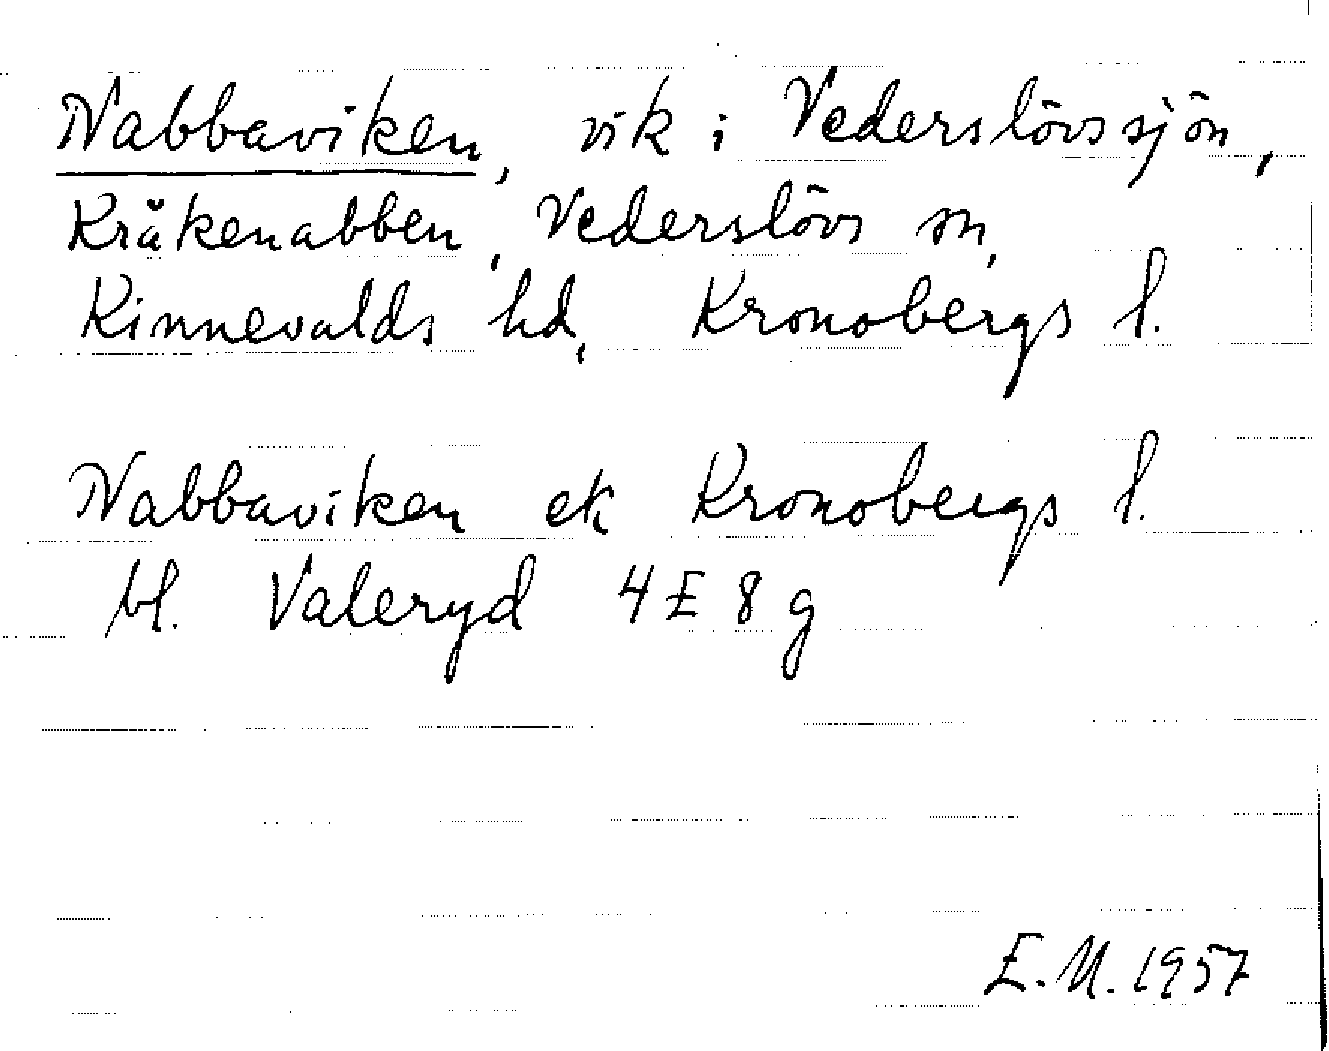 Nabbaviken, vik i Vederslövssjön,
Kråkenabben, Vederslövs sn,
Kinnevalds hd, Kronobergs l.
Nabbaviken ek Kronobergs l.
bl. Valeryd 4E 8 g
E.M. 1957